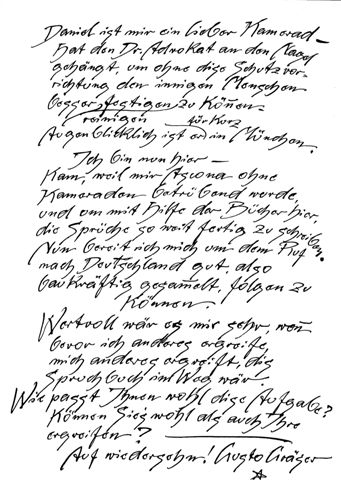 Daniel ist mir ein lieber Kamerad –
hat den Dr. Advokat an den Nagel
gehängt, um ohne dise Schutzvor-
richtung den innigen Menschen
besser festigen zu können
reinigen für kurz
Augenblicklich ist er in München.
Ich bin nun hier –
kam, weil mir Ascona ohne
Kameraden betrübend wurde
und um mit Hilfe der Bücher hier,
die Sprüche so weit fertig zu schreiben.
Nun bereit ich mich um dem Ruf
nach Deutschland gut, also
baukräftig gesamelt, folgen zu
können.
Wertvoll wär es mir sehr, wen
bevor ich anderes ergreife,
mich anderes ergreift, dis
Spruchbuch im Weg wär.
Wie passt Ihnen wohl dise Aufgabe?
Können Sies wohl als auch Ihre
ergreifen?
Auf wiedersehn! Gusto Gräser